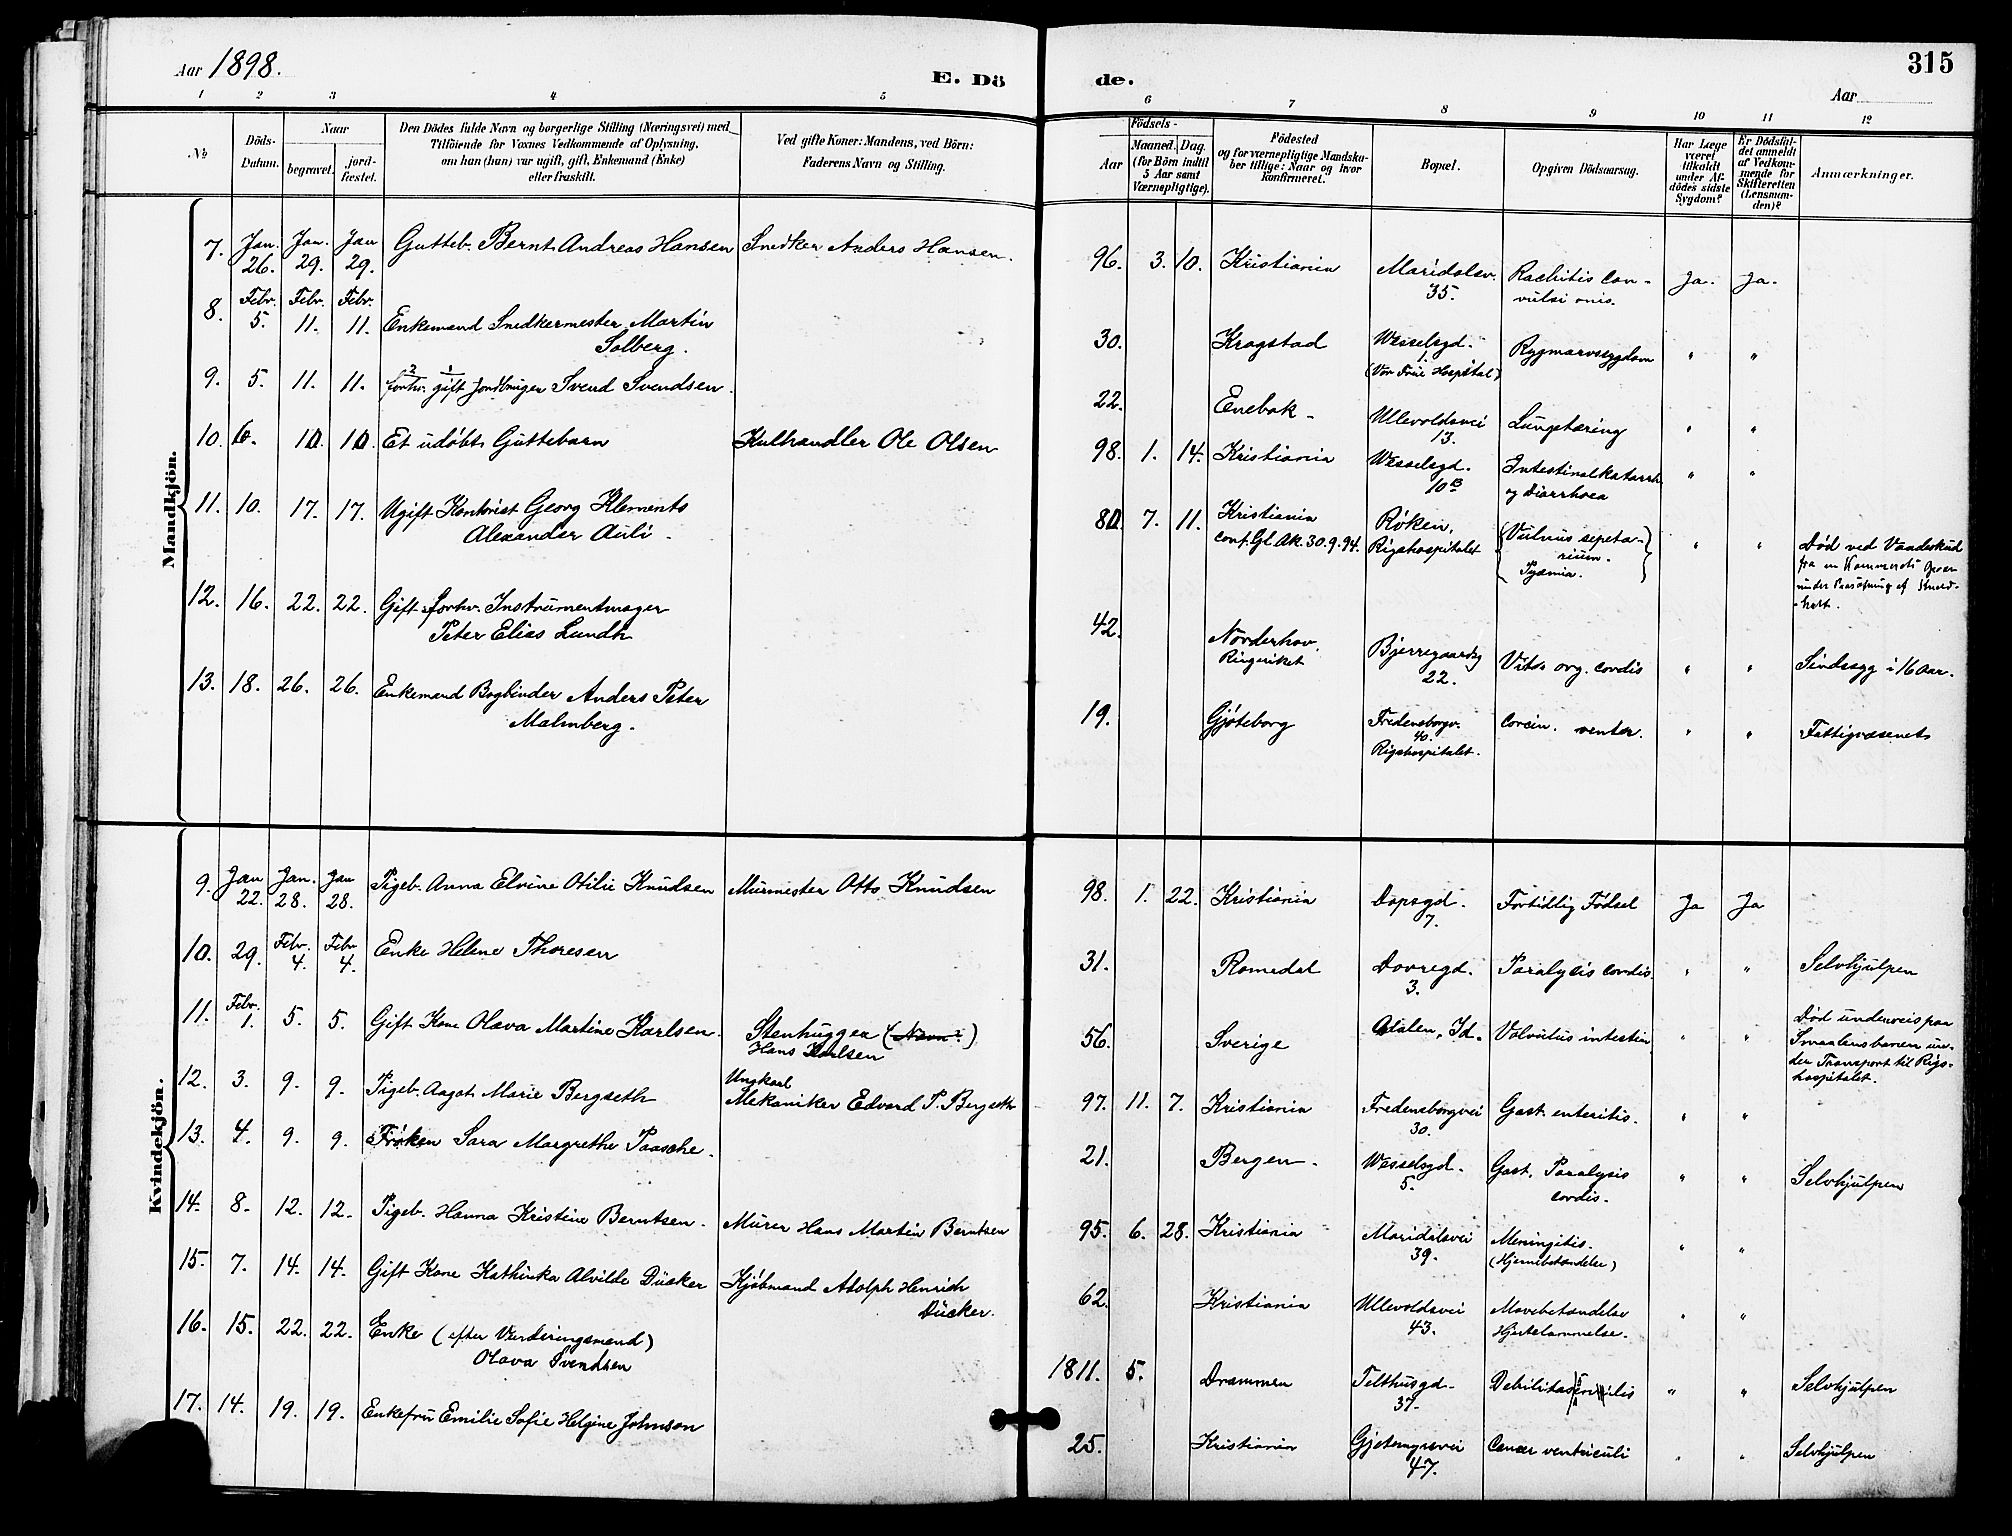 Aar 1898.
E. Dö
de.
315
Aar
1 2 3 4 5 6 7 8 9 10 11 12
No
Döds-Datum.
Naar
begravet.
jord-fæstet.
Den Dödes fulde Navn og borgerlige Stilling (Næringsvei) med
Tilföiende for Voxnes Vedkommende af Oplysning,
om han (hun) var ugift, gift, Enkemand (Enke)
eller fraskilt.
Ved gifte Koner: Mandens, ved Börn:
Faderens Navn og Stilling.
Födsels-
Aar
Maaned. Dag.
(for Börn indtil
5 Aar samt
Værnepligtige).
Födested
og for værnepligtige Mandska-
ber tillige: Naar og hvor
konfirmeret.
Bopæl.
Opgiven Dödsaarsag.
Har Læge
været
tilkaldt
under Af-
dödes sidste
Sygdom?
Er Dödsfal-
det anmeldt
af Vedkom-
mende for
Skifteretten
(Lensman-
den)?
Anmærkninger.
Mandkjön.
7. Jan. 26. Jan. 29. Jan 29. Gutteb. Bernt Andreas Hansen Snedker Anders Hansen. 96. 3. 10. Kristiania Maridalsv. 35. Rachitis Con-
vulsionis. Ja. Ja.
8. Febr. 5. Febr. 11. Febr. 11. Enkemand Snedkermester Martin
Solberg. 30. Kragstad Wesselsgd. 1. (Vor Frue Hospital) Rygmarvssygdom " "
9. 5. 11. 11. forhv. gift Jordbruger Svend Svendsen. 22. Enebak - Ullevoldsvei 13. Lungetæring " "
10. 6. 10. 10. Et udøbt Guttebarn Kulhandler Ole Olsen 98. 1. 14. Kristiania Wesselsgd. 10 B Intestinalkatarrh
og Diarrhoea " "
11. 10. 17. 17. Ugift Kontorist Georg Klements
Alexander Auli. 80. 7. 11. Kristiania
conf. Gl. Ak. 30.9.94. Røken,
Rigshospitalet Vulnus
Pyæmia. " " Død ved Vaadeskud
fra en
under af
12. 16. 22. 22. Gift forhv. Instrumentmager
Peter Elias Lundh 42. Norderhov,
Ringeriket Bjerregaardsg 22. Vits. org. cordis " " Sindssyg i 16 Aar.
13. 18. 26. 26. Enkemand Bogbinder Anders Peter
Malmberg. 19. Gjøteborg Fredensborgv. 40.
Rigshospitalet. Carcin. venter. " " Fattigvæsenet
Kvindekjön.
9. Jan 22. Jan. 28. Jan 28. Pigeb. Anna Elvine Otilie Knudsen Murmester Otto Knudsen 98. 1. 22. Kristiania Dopsgd. 7. Fortidlig Fødsel Ja Ja
10. 29. Febr. 4. Febr 4. Enke Helene Thoresen 31. Romedal Dovregd. 3. Paralysis cordis. " " Selvhjulpen
11. Febr. 1. 5. 5. Gift Kone Olava Martine Karlsen. Stenhugger (Navn?)
Hans Karlsen 56. Sverige Id. Volvulus intestin " " Død underveis paa
Smaalensbanen un-
der Transport til Rigs-
hospitalet.
12. 3. 9. 9. Pigeb. Aagot Marie Bergseth Ungkarl
Mekaniker Edvard P. Bergseth 97. 11. 7. Kristiania Fredensborgvei 30. Gast. enteritis. " "
13. 4. 9. 9. Frøken Sara Margrethe Paasche. 21. Bergen - Wesselsgd. 5. Gast. Paralysis
cordis. " " Selvhjulpen
14. 8. 12. 12. Pigeb. Hanna Kristine Berntsen. Murer Hans Martin Berntsen 95. 6. 28. Kristiania Maridalsvei 39. Meningitis.
(Hjernebetændelse) " "
15. 7. 14. 14. Gift Kone Kathinka Alvilde Dücker Kjøbmand Adolph Henrich
Dücker. 62. Kristiania Ullevoldsvei 43. Mavebetændelse
Hjertelammelse. " "
16. 15. 22. 22. Enke (efter Vurderingsmand)
Olava Svendsen 1811. 5. Drammen Telthusgd. 37. Debilitas senilis " " Selvhjulpen
17. 14. 19. 19. Enkefru Emilie Sofie Helgine Johnson 25. Kristiania Gjetemyrsvei 47. Cancer ventriculi " " Selvhjulpen